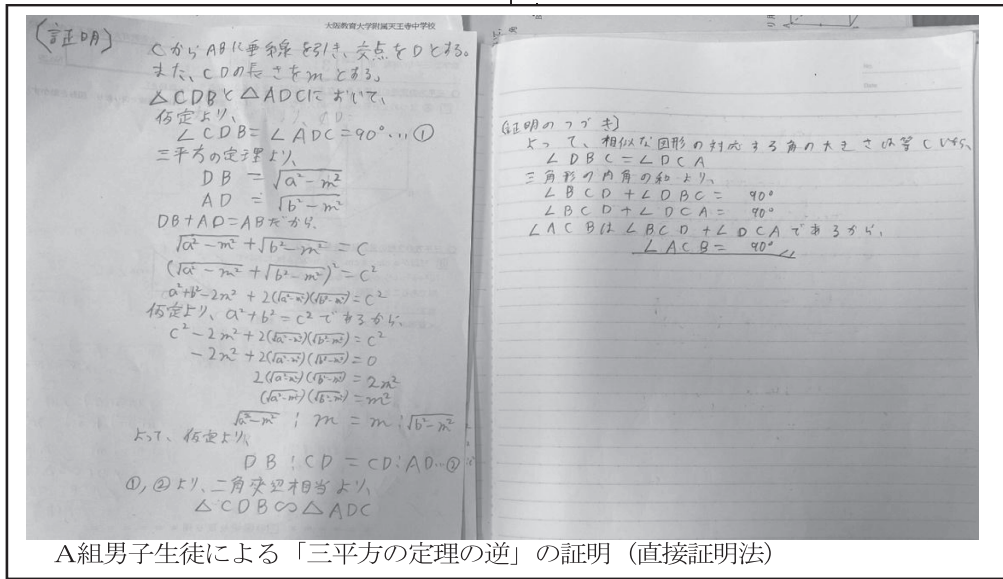 大阪教育大学附属天王寺中学校
(証明)
CからABに垂線を引き、交点をDとする。
また、CDの長さをmとする。
△CDBと△ADCにおいて、
仮定より、
∠CDB=∠ADC=90°…①
三平方の定理より、
DB = √(a²-m²)
AD = √(b²-m²)
DB+AD=ABだから、
√(a²-m²)+√(b²-m²)=C
(√(a²-m²)+√(b²-m²))²=C²
a²+b²-2m²+2(√(a²-m²))(√(b²-m²))=C²
仮定より、a²+b²=C²であるから、
C²-2m²+2(√(a²-m²))(√(b²-m²))=C²
-2m²+2(√(a²-m²))(√(b²-m²))=0
2(√(a²-m²))(√(b²-m²))=2m²
(√(a²-m²))(√(b²-m²))=m²
√(a²-m²):m=m:√(b²-m²)
よって、仮定より、
DB:CD=CD:AD…②
①,②より、二角夾辺相当より、
△CDB∽△ADC
(証明のつづき)
よって、相似な図形の対応する角の大きさは等しいから、
∠DBC=∠DCA
三角形の内角の和より、
∠BCD+∠DBC= 90°
∠BCD+∠DCA= 90°
∠ACBは∠BCD+∠DCAであるから、
∠ACB= 90°
A組男子生徒による「三平方の定理の逆」の証明(直接証明法)